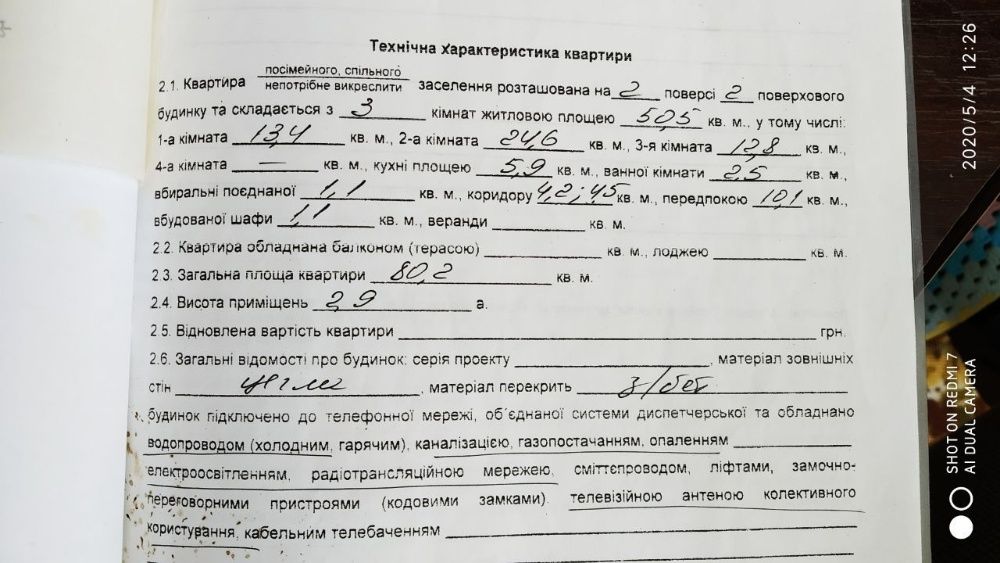 Технічна характеристика квартири
посімейного, спільного
2.1. Квартира непотрібне викреслити заселення розташована на 2 поверсі 2 поверхового
будинку та складається з 3 кімнат житловою площею 50,5 кв. м., у тому числі:
1-а кімната 13,4 кв. м., 2-а кімната 24,6 кв. м., 3-я кімната 12,8 кв. м.,
4-а кімната — кв. м., кухні площею 5,9 кв. м., ванної кімнати 2,5 кв. м.,
вбиральні поєднаної 1,1 кв. м., коридору 4,2; 4,5 кв. м., передпокою 10,1 кв. м.,
вбудованої шафи 1,1 кв. м., веранди кв. м.
2.2. Квартира обладнана балконом (терасою) кв. м., лоджею кв. м.
2.3. Загальна площа квартири 80,2 кв. м.
2.4. Висота приміщень 2,9 а.
2.5. Відновлена вартість квартири грн.
2.6. Загальні відомості про будинок: серія проекту , матеріал зовнішніх
стін цегла , матеріал перекрить з/бет
будинок підключено до телефонної мережі, об'єднаної системи диспетчерської та обладнано
водопроводом (холодним, гарячим), каналізацією, газопостачанням, опаленням
електроосвітленням, радіотрансляційною мережею, сміттєпроводом, ліфтами, замочно-
переговорними пристроями (кодовими замками). телевізійною антеною колективного
користування, кабельним телебаченням
2020/5/4 12:26
SHOT ON REDMI 7
AI DUAL CAMERA